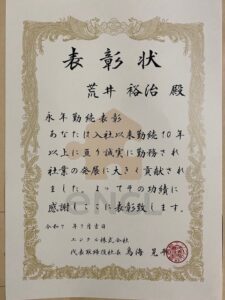 表彰状
荒井 裕治 殿
永年勤続表彰
あなたは入社以来勤続10年
以上に亘り誠実に勤務され
社業の発展に大きく貢献され
ました。よってその功績に
感謝しここに表彰致します。
令和7年7月吉日
エンクル株式会社
代表取締役社長 鳥海